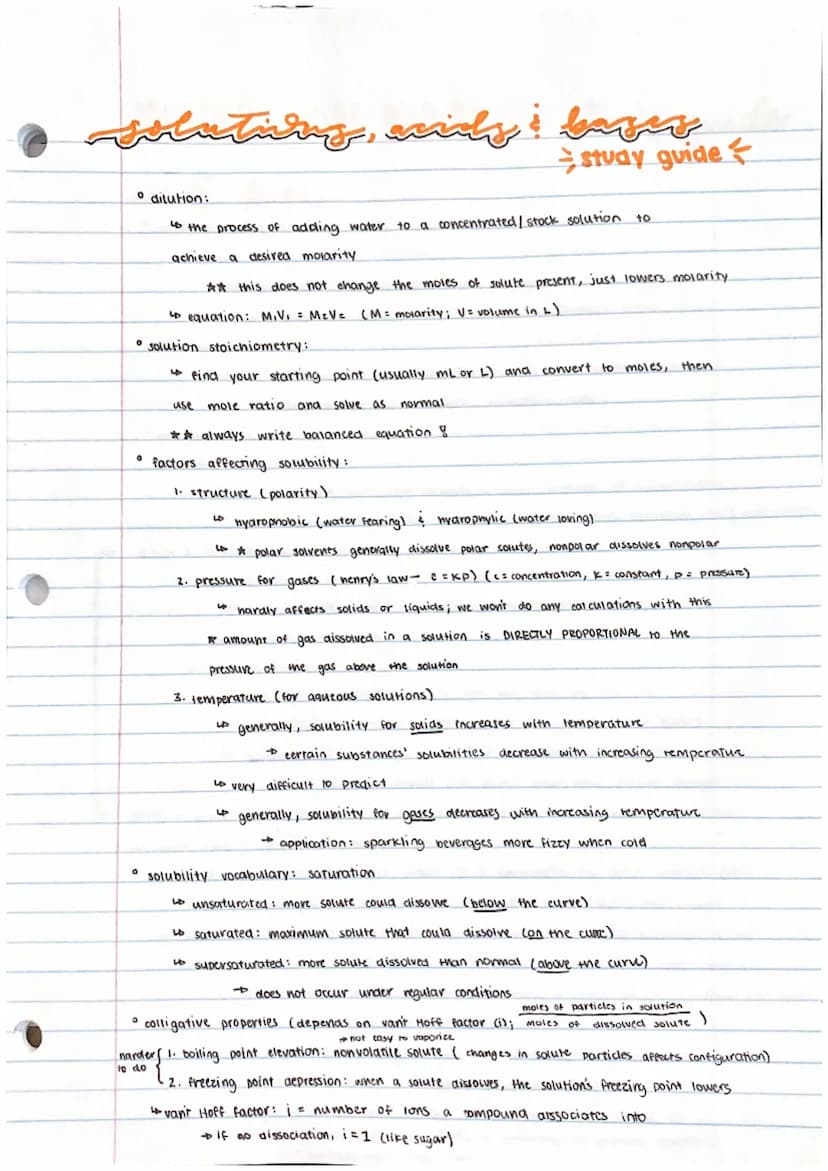 solutions, acids & bases
study guide
° dilution:
↳ the process of adding water to a concentrated/stock solution to
achieve a desired molarity
** this does not change the moles of solute present, just lowers molarity
↳ equation: M₁V₁ = M₂V₂ (M = molarity; V = volume in L)
° solution stoichiometry:
↳ find your starting point (usually mL or L) and convert to moles, then
use mole ratio and solve as normal
** always write balanced equation !
° factors affecting solubility:
1. structure (polarity)
↳ hydrophobic (water fearing) & hydrophylic (water loving)
↳ * polar solvents generally dissolve polar solutes, nonpolar dissolves nonpolar
2. pressure for gases (henry's law - c = kp) (c = concentration, k = constant, p = pressure)
↳ hardly affects solids or liquids; we won't do any calculations with this
* amount of gas dissolved in a solution is DIRECTLY PROPORTIONAL to the
pressure of the gas above the solution
3. temperature (for aqueous solutions)
↳ generally, solubility for solids increases with temperature
→ certain substances' solubilities decrease with increasing temperature
↳ very difficult to predict
↳ generally, solubility for gases decreases with increasing temperature
→ application: sparkling beverages more fizzy when cold
° solubility vocabulary: saturation
↳ unsaturated: more solute could dissolve (below the curve)
↳ saturated: maximum solute that could dissolve (on the curve)
↳ supersaturated: more solute dissolved than normal (above the curve)
→ does not occur under regular conditions
° colligative properties (depends on van't Hoff factor (i); moles of particles in solution / moles of dissolved solute)
→ not easy to vaporize
harder to do { 1. boiling point elevation: nonvolatile solute (changes in solute particles affects configuration)
2. freezing point depression: when a solute dissolves, the solution's freezing point lowers
↳ van't Hoff factor: i = number of ions a compound dissociates into
→ if no dissociation, i = 1 (like sugar)